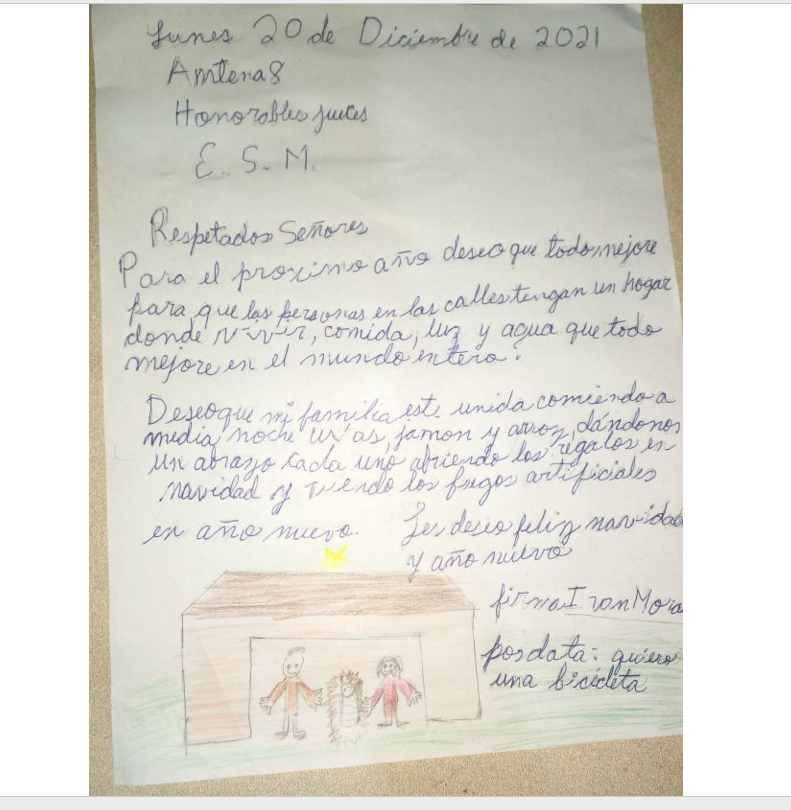 Lunes 20 de Diciembre de 2021
Antena8
Honorables jueces
E. S. M.
Respetados Señores
Para el proximo año deseo que todo mejore
para que las personas en las calles tengan un hogar
donde vivir, comida, luz y agua que todo
mejore en el mundo entero.
Deseo que mi familia este unida comiendo a
media noche uvas, jamon y arroz, dándonos
un abrazo cada uno abriendo los regalos en
navidad y viendo los fuegos artificiales
en año nuevo. Les deseo feliz navidad
y año nuevo
firma Ivan Mora
posdata: quiero
una bicicleta